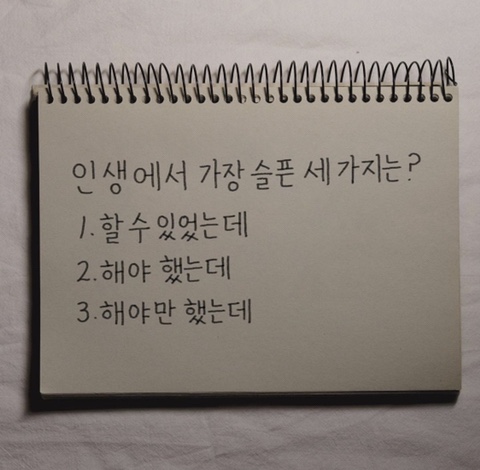 인생에서 가장 슬픈 세 가지는?
1. 할 수 있었는데
2. 해야 했는데
3. 해야만 했는데